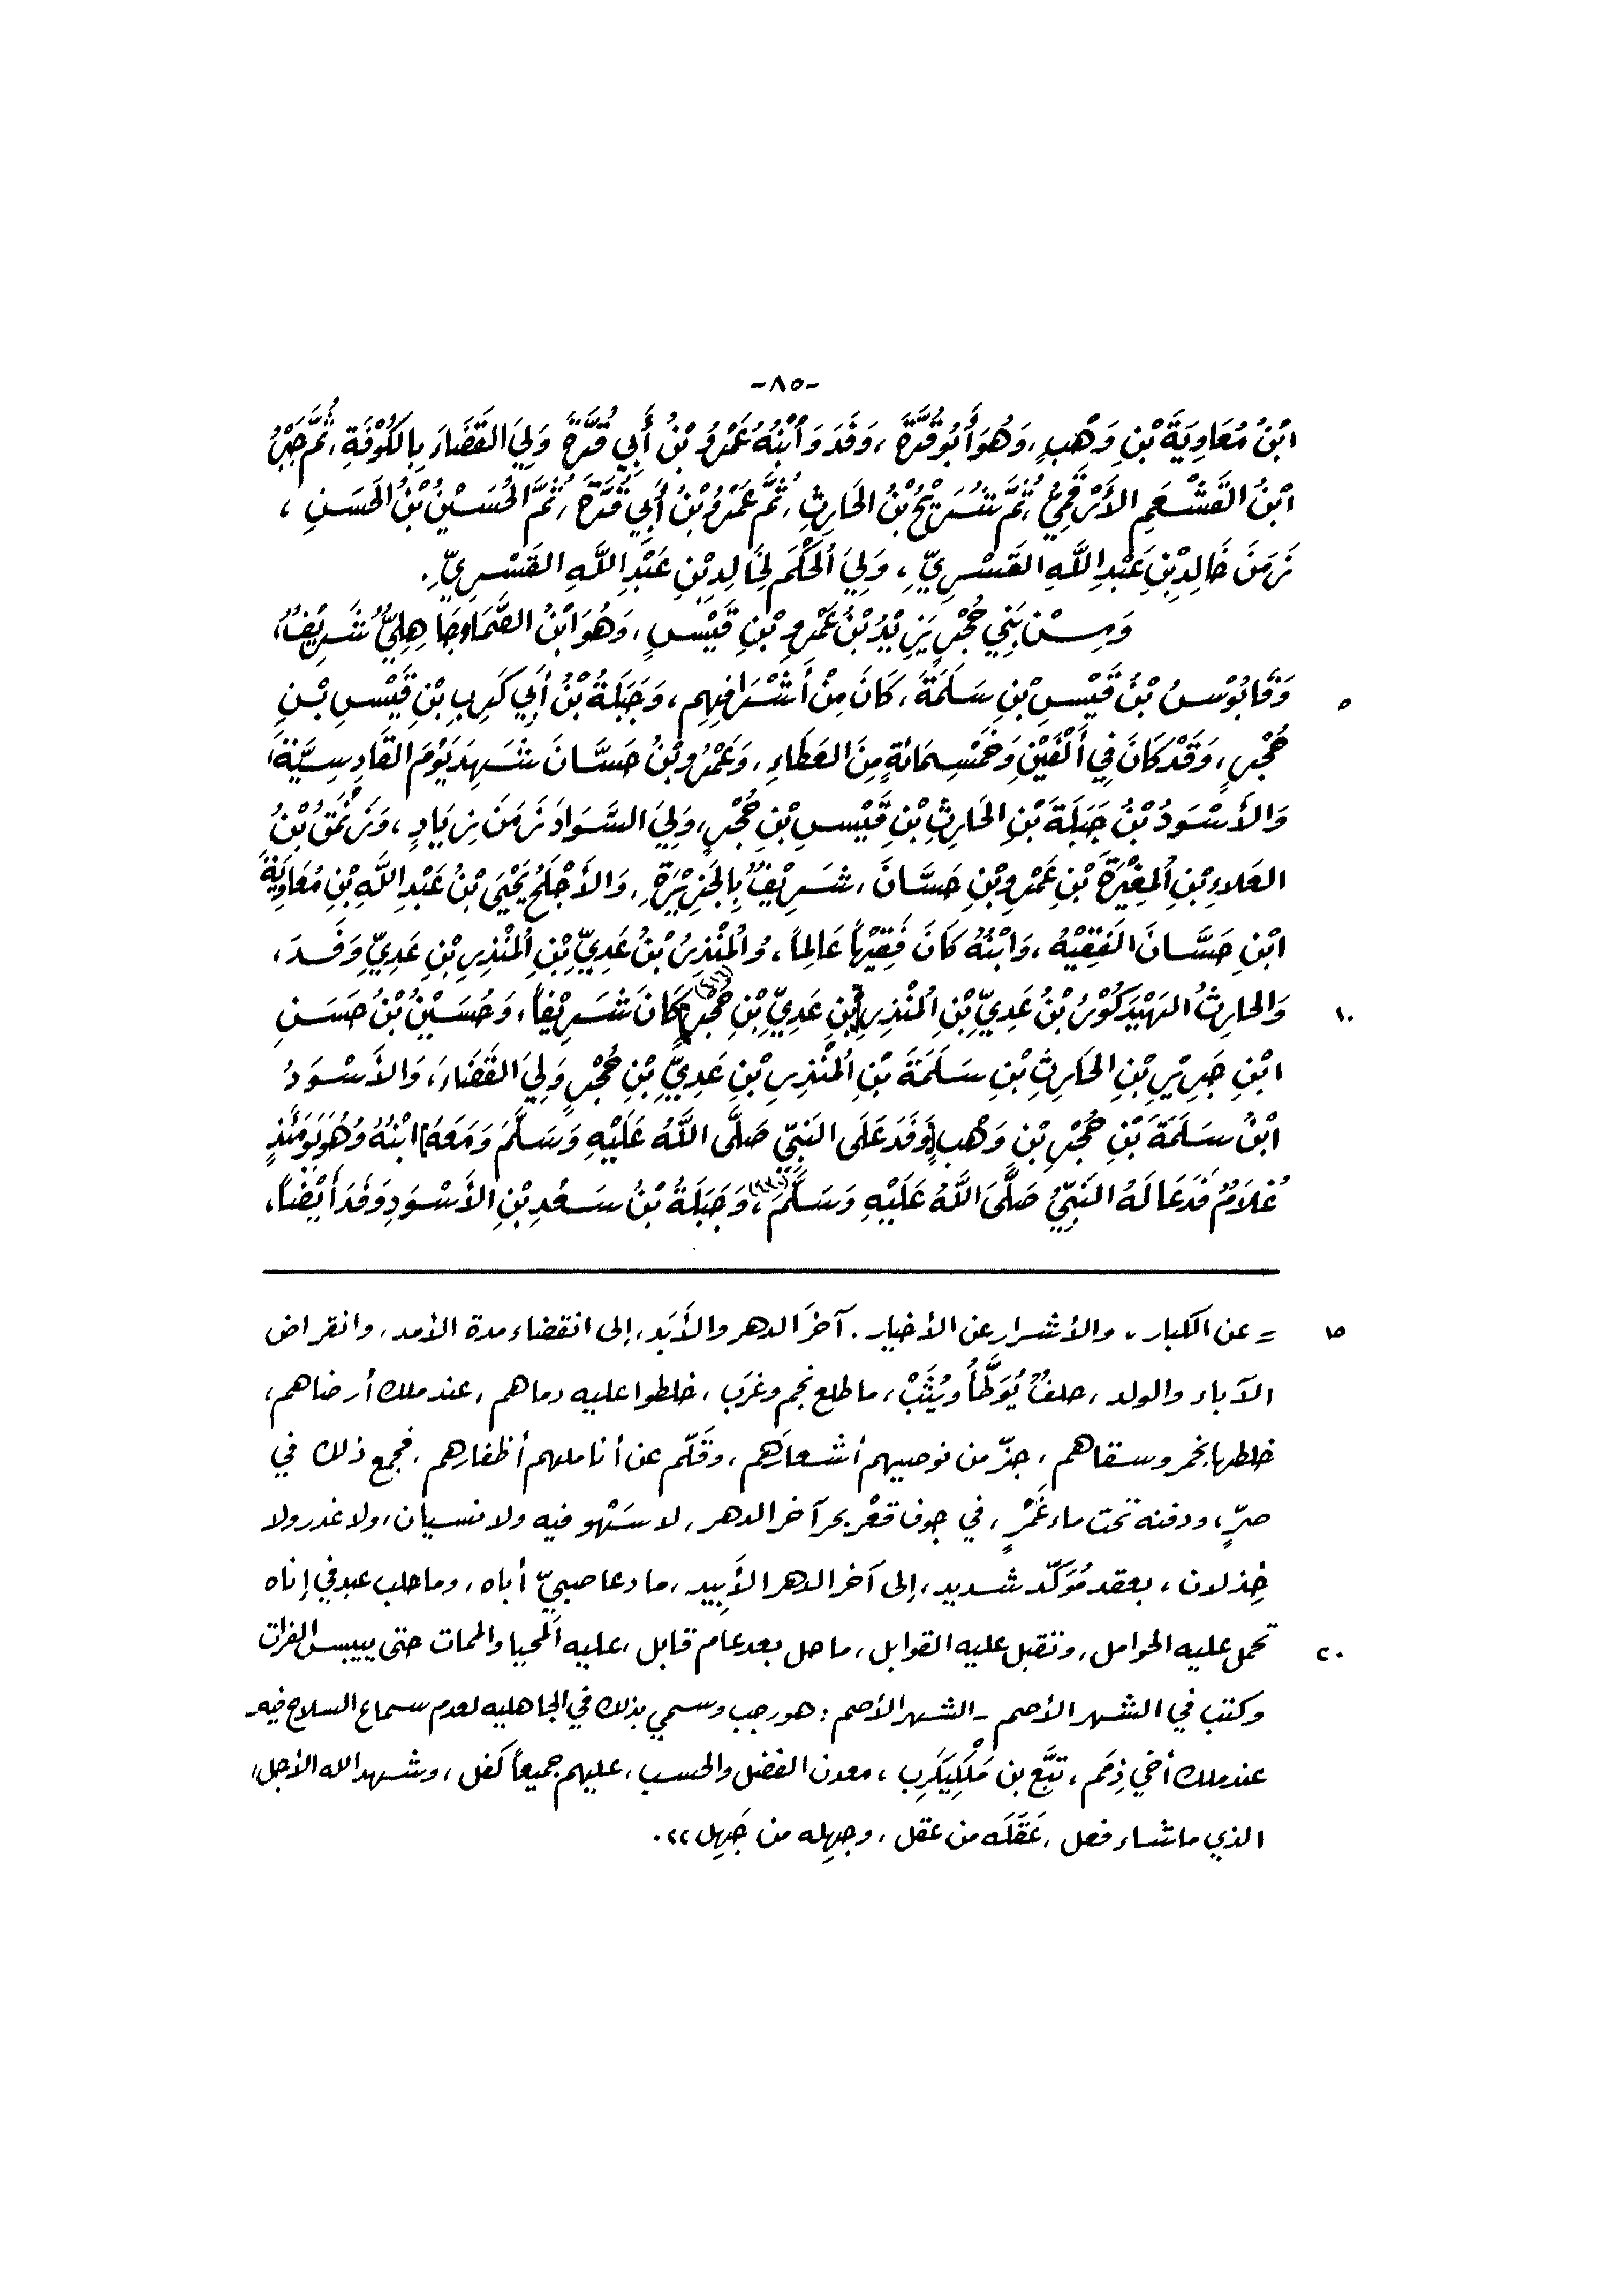 -٨٥-
ابْنُ مُعَاوِيَةَ بْنِ وَهْبٍ، وَهُوَ أَبُو قُرَّةَ، وَفَدَ وَابْنُهُ عَمْرُو بْنُ أَبِي قُرَّةَ وَلِيَ القَضَاءَ بِالكُوْفَةِ، ثُمَّ جَبْرُ
ابْنُ القَشْعَمِ الأَرْقَمِيُّ، ثُمَّ شُرَيْحُ بْنُ الحَارِثِ، ثُمَّ عَمْرُو بْنُ أَبِي قُرَّةَ، ثُمَّ الحُسَيْنُ بْنُ الحَسَنِ،
زَمَنَ خَالِدِ بْنِ عَبْدِ اللَّهِ القَسْرِيِّ، وَلِيَ الحُكْمَ لِخَالِدِ بْنِ عَبْدِ اللَّهِ القَسْرِيِّ.
وَمِنْ بَنِي حُجْرٍ يَزِيْدُ بْنُ عَمْرِو بْنِ قَيْسٍ، وَهُوَ ابْنُ الصَّمَّاءِ جَاهِلِيٌّ شَرِيْفٌ،
٥ وَقَابُوْسُ بْنُ قَيْسِ بْنِ سَلَمَةَ، كَانَ مِنْ أَشْرَافِهِم، وَجَبَلَةُ بْنُ أَبِي كَرِبِ بْنِ قَيْسِ بْنِ
حُجْرٍ، وَقَدْ كَانَ فِي أَلْفَيْنِ وَخَمْسِمَائَةٍ مِنَ العَطَاءِ، وَعَمْرُو بْنُ حَسَّانَ شَهِدَ يَوْمَ القَادِسِيَّةِ،
وَالأَسْوَدُ بْنُ جَبَلَةَ بْنِ الحَارِثِ بْنِ قَيْسِ بْنِ حُجْرٍ، وَلِيَ السَّوَادَ زَمَنَ زِيَادٍ، وَزَنْمَقُ بْنُ
العَلاءِ بْنِ المُغِيْرَةِ بْنِ عَمْرِو بْنِ حَسَّانَ، شَرِيْفٌ بِالجَزِيْرَةِ، وَالأَجْلَحُ يَحْيَى بْنُ عَبْدِ اللَّهِ بْنِ مُعَاوِيَةَ
ابْنِ حَسَّانَ الفَقِيْهُ، وَابْنُهُ كَانَ فَقِيْهًا عَالِمًا، وَالمُنْذِرُ بْنُ عَدِيِّ بْنِ المُنْذِرِ بْنِ عَدِيٍّ وَفَدَ،
١٠ وَالحَارِثُ الهَيْدَكُوْرُ بْنُ عَدِيِّ بْنِ المُنْذِرِ [بْنِ عَدِيِّ بْنِ حُجْرٍ] كَانَ شَرِيْفًا، وَحُسَيْنُ بْنُ حَسَنِ
ابْنِ جَرِيْرِ بْنِ الحَارِثِ بْنِ سَلَمَةَ بْنِ المُنْذِرِ بْنِ عَدِيِّ بْنِ حُجْرٍ وَلِيَ القَضَاءَ، وَالأَسْوَدُ
ابْنُ سَلَمَةَ بْنِ حُجْرِ بْنِ وَهْبٍ [وَفَدَ عَلَى النَبِيِّ صَلَّى اللَّهُ عَلَيْهِ وَسَلَّمَ وَمَعَهُ] ابْنُهُ وَهُوَ يَوْمَئِذٍ
غُلَامٌ فَدَعَا لَهُ النَبِيُّ صَلَّى اللَّهُ عَلَيْهِ وَسَلَّمَ، وَجَبَلَةُ بْنُ سَعْدِ بْنِ الأَسْوَدِ وَفَدَ أَيْضًا،
١٥ = عن الكبار، والأشرار عن الأخيار. آخرَ الدهر والأَبَد، إلى انقضاء مدة الأمد، وانقراض
الآباء والولد، حلفٌ يُوَطَّأُ ويُثَبْ، ما طلع نجم وغَرَب، خلطوا عليه دماهم، عند ملك أرضاهم،
خلطها بخمر وسقاهم، جزّ من نوصيهم أشعارَهم، وقَلّم عن أناملهم أظفارهم، فجمع ذلك في
صرٍّ، ودفنه تحت ماء غَمْرٍ، في جوف قعْر بحر آخر الدهر، لا سَهْو فيه ولا نسيان، ولا غدر ولا
خِذلان، بعقد مُوَكّد شديد، إلى آخر الدهر الأَبِيد، ما دعا صبيّ أباه، وما حلب عبد في إناه
٢٠ تحمل عليه الحوامل، وتقبل عليه القوابل، ما حل بعد عام قابل، عليه المحيا والممات حتى ييبس الفرات
وكتب في الشهر الأصم - الشهر الأصم: هو رجب وسمي بذلك في الجاهليه لعدم سماع السلاح فيه-
عند ملك أخي ذِمَم، تبَّع بن مَلْكِيكَرِب، معدن الفضل والحسب، عليهم جميعاً كفل، وشهد الله الأجل،
الذي ما شاء فعل، عَقَلَه من عقل، وجهِله من جَهِل ،،.